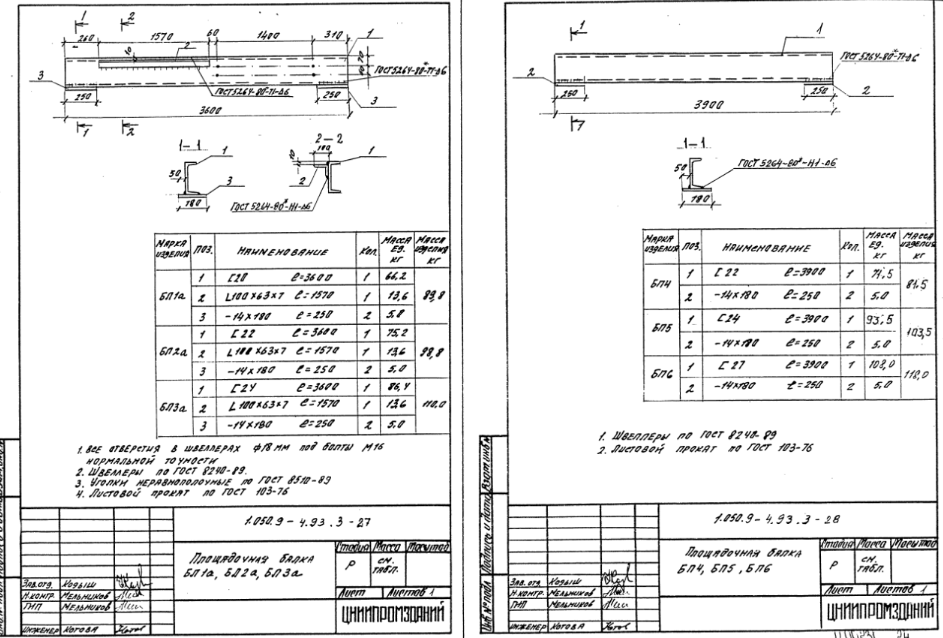 1
2
260
1570
60
1400
310
1
2
10
70
ГОСТ 5264-80*-Т1-Δ6
ГОСТ 5264-80*-Т1-Δ6
3
250
250
3
3600
1
2
1-1
1
50
3
180
2-2
180
10
1
2
ГОСТ 5264-80*-Н1-Δ6
МАРКА ИЗДЕЛИЯ ПОЗ. НАИМЕНОВАНИЕ КОЛ. МАССА ЕД. КГ МАССА ИЗДЕЛИЯ КГ
БП1а
1 [20 ℓ=3600 1 66,2
2 L100×63×7 ℓ=1570 1 13,6 89,8
3 -14×180 ℓ=250 2 5,0
БП2а
1 [22 ℓ=3600 1 75,2
2 L100×63×7 ℓ=1570 1 13,6 98,8
3 -14×180 ℓ=250 2 5,0
БП3а
1 [24 ℓ=3600 1 86,4
2 L100×63×7 ℓ=1570 1 13,6 110,0
3 -14×180 ℓ=250 2 5,0
1. ВСЕ ОТВЕРСТИЯ В ШВЕЛЛЕРАХ ф18 ММ ПОД БОЛТЫ М16
НОРМАЛЬНОЙ ТОЧНОСТИ
2. ШВЕЛЛЕРЫ ПО ГОСТ 8240-89.
3. УГОЛКИ НЕРАВНОПОЛОЧНЫЕ ПО ГОСТ 8510-89
4. ЛИСТОВОЙ ПРОКАТ ПО ГОСТ 103-76
1.050.9-4.93.3-27
ПЛОЩАДОЧНАЯ БАЛКА
БП1а, БП2а, БП3а
Стадия Масса Масштаб
Р СМ. ТАБЛ.
Лист Листов 1
ЦНИИПРОМЗДАНИЙ
ЗАВ.ОТД. КОДЫШ
Н.КОНТР. МЕЛЬНИКОВ
ГИП МЕЛЬНИКОВ
ИНЖЕНЕР КОТОВА
1
1
ГОСТ 5264-80*-Т1-Δ6
2
250
250
2
3900
1
1-1
50
ГОСТ 5264-80*-Н1-Δ6
180
МАРКА ИЗДЕЛИЯ ПОЗ. НАИМЕНОВАНИЕ КОЛ. МАССА ЕД. КГ МАССА ИЗДЕЛИЯ КГ
БП4
1 [22 ℓ=3900 1 71,5 81,5
2 -14×180 ℓ=250 2 5,0
БП5
1 [24 ℓ=3900 1 93,5 103,5
2 -14×180 ℓ=250 2 5,0
БП6
1 [27 ℓ=3900 1 108,0 118,0
2 -14×180 ℓ=250 2 5,0
1. ШВЕЛЛЕРЫ ПО ГОСТ 8240-89
2. ЛИСТОВОЙ ПРОКАТ ПО ГОСТ 103-76
1.050.9-4.93.3-28
ПЛОЩАДОЧНАЯ БАЛКА
БП4, БП5, БП6
Стадия Масса Масштаб
Р СМ. ТАБЛ.
Лист Листов 1
ЦНИИПРОМЗДАНИЙ
ЗАВ.ОТД. КОДЫШ
Н.КОНТР. МЕЛЬНИКОВ
ГИП МЕЛЬНИКОВ
ИНЖЕНЕР КОТОВА
Инв.№ подл. Подпись и дата Взам.инв.№